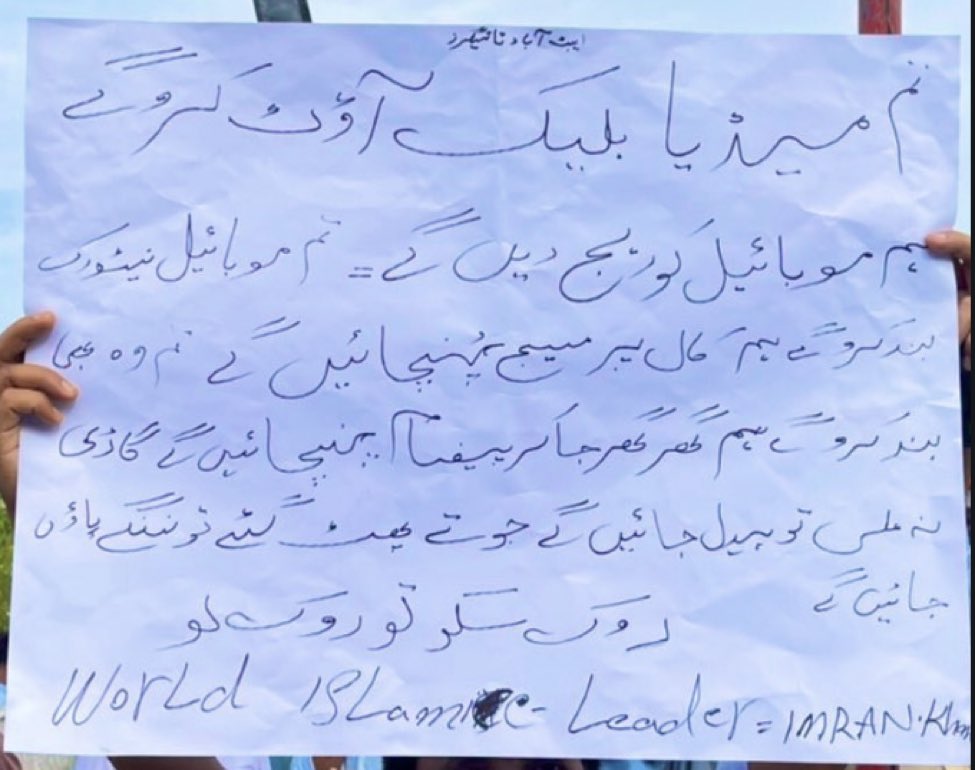 ایبٹ آباد ٹائیگرز
تم میڈیا بلیک آؤٹ کروگے
ہم موبائیل کوریج دیں گے = تم موبائیل نیٹورک
بند کروگے ہم کال پر میسج پہنچائیں گے تم وہ بھی
بند کروگے ہم گھر گھر جا کر پیغام پہنچائیں گے گاڑی
نہ ملی تو پیدل جائیں گے جوتے پھٹ گئے تو ننگے پاؤں
جائیں گے
روک سکو تو روک لو
World Islamic - Leader = IMRAN.Kha